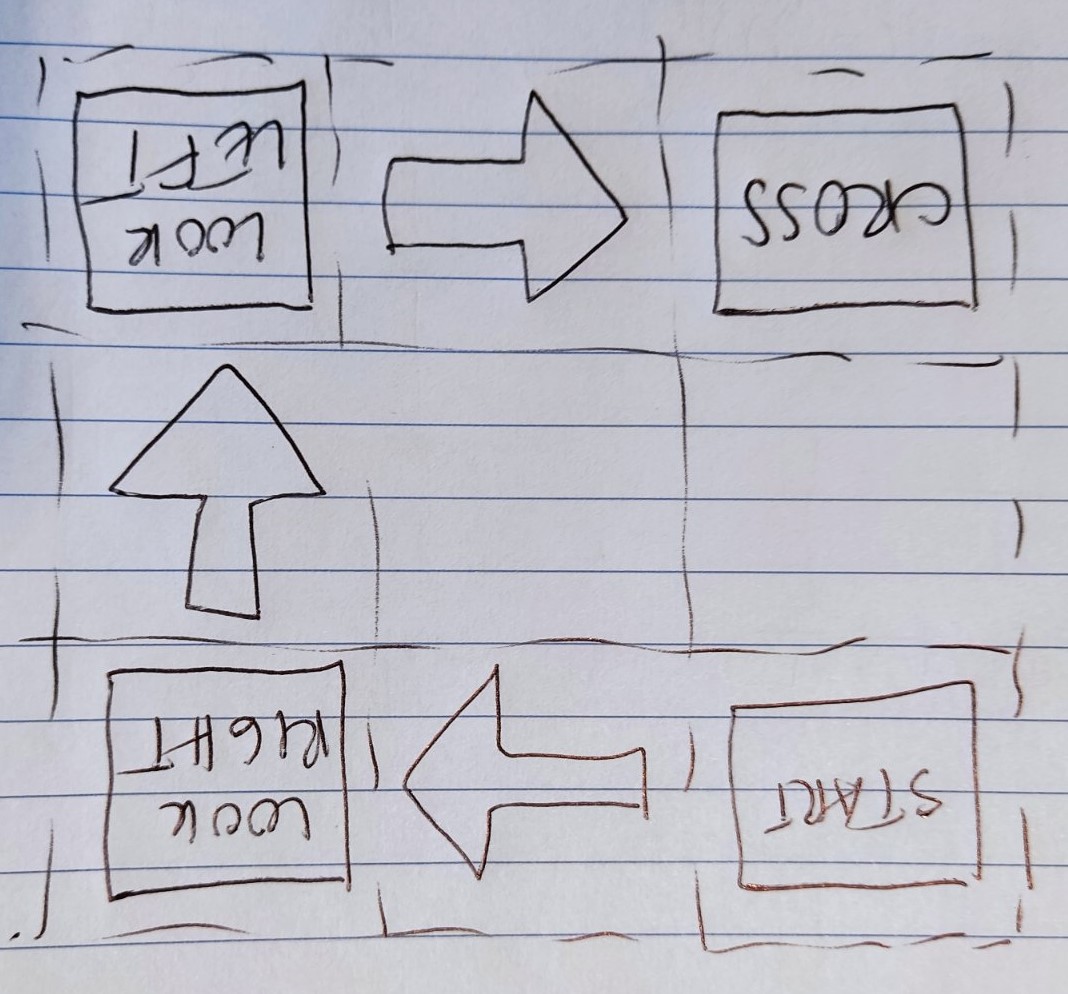 START
LOOK
RIGHT
LOOK
LEFT
CROSS